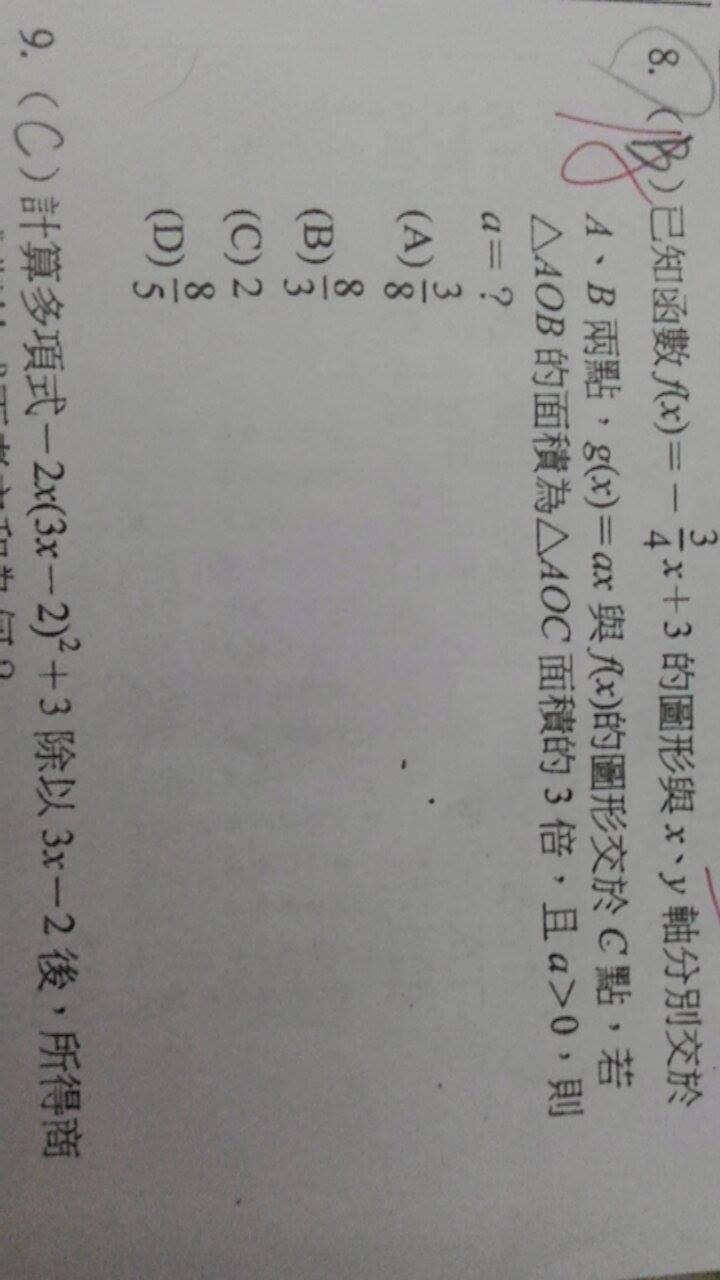 8. (B) 已知函數 f(x)=－3/4x＋3 的圖形與 x、y 軸分別交於
A、B 兩點，g(x)=ax 與 f(x)的圖形交於 C 點，若
△AOB 的面積為△AOC 面積的 3 倍，且 a＞0，則
a＝？
(A) 3/8
(B) 8/3
(C) 2
(D) 8/5
9. (C) 計算多項式－2x(3x－2)²＋3 除以 3x－2 後，所得商